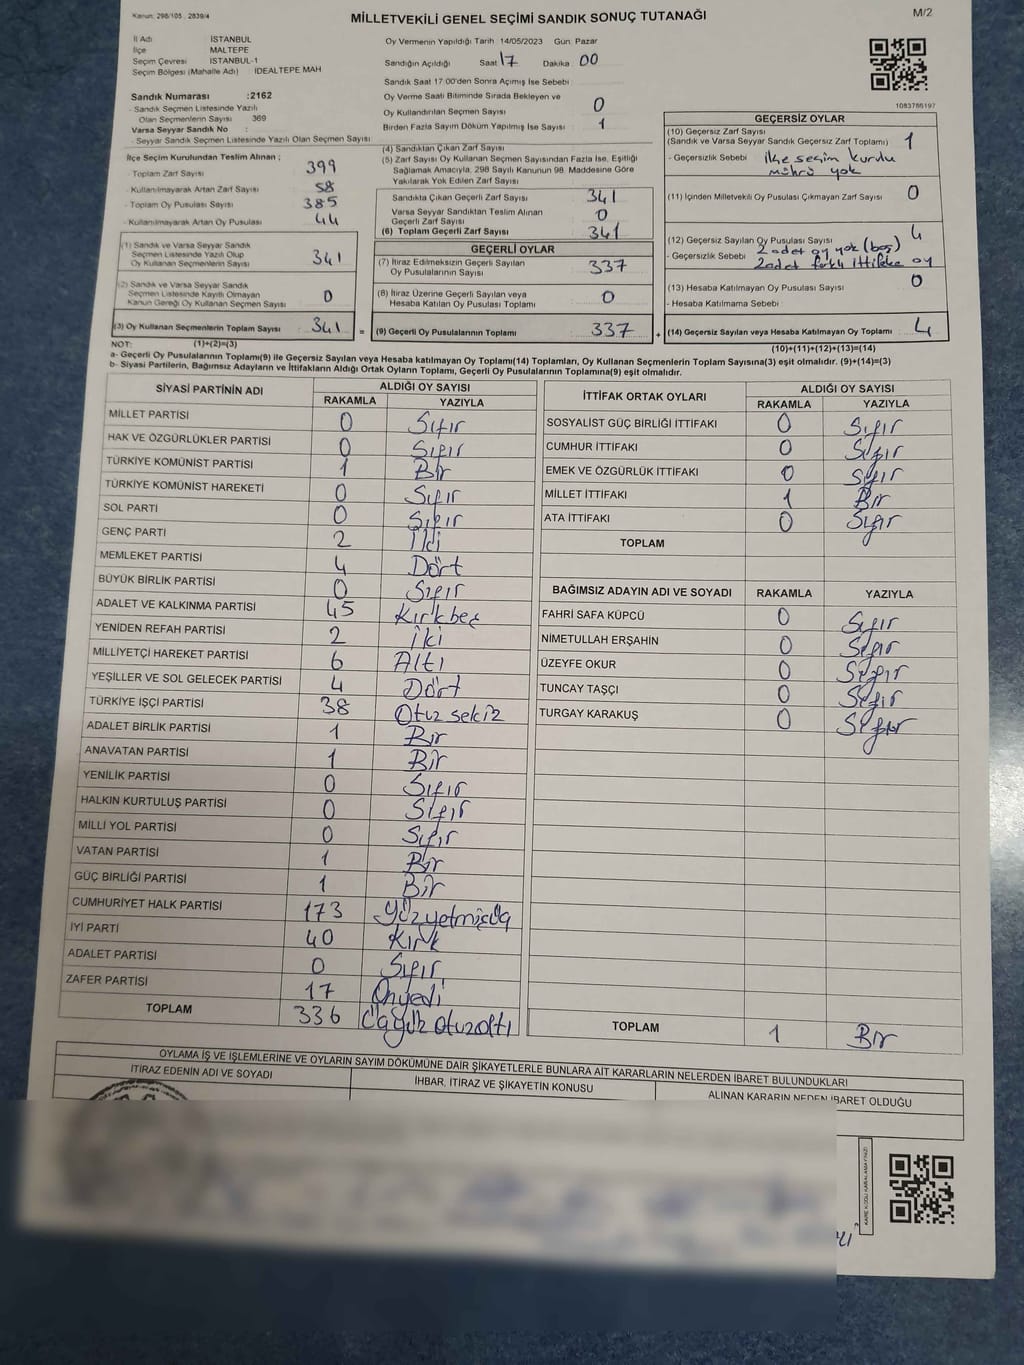 Kanun: 298/105 , 2839/4
MİLLETVEKİLİ GENEL SEÇİMİ SANDIK SONUÇ TUTANAĞI
M/2
İl Adı İSTANBUL
İlçe MALTEPE
Seçim Çevresi İSTANBUL-1
Seçim Bölgesi (Mahalle Adı) : İDEALTEPE MAH
Sandık Numarası :2162
- Sandık Seçmen Listesinde Yazılı
Olan Seçmenlerin Sayısı 369
Varsa Seyyar Sandık No :
- Seyyar Sandık Seçmen Listesinde Yazılı Olan Seçmen Sayısı
Oy Vermenin Yapıldığı Tarih 14/05/2023 Gün: Pazar
Sandığın Açıldığı Saat 17 Dakika 00
Sandık Saat 17:00'den Sonra Açımış İse Sebebi
Oy Verme Saati Bitiminde Sırada Bekleyen ve
Oy Kullandırılan Seçmen Sayısı 0
Birden Fazla Sayım Döküm Yapılmış İse Sayısı 1
1083786197
İlçe Seçim Kurulundan Teslim Alınan ;
- Toplam Zarf Sayısı 399
- Kullanılmayarak Artan Zarf Sayısı 58
- Toplam Oy Pusulası Sayısı 385
- Kullanılmayarak Artan Oy Pusulası 44
(1) Sandık ve Varsa Seyyar Sandık
Seçmen Listesinde Yazılı Olup
Oy Kullanan Seçmenlerin Sayısı 341
(2) Sandık ve Varsa Seyyar Sandık
Seçmen Listesinde Kayıtlı Olmayan
Kanun Gereği Oy Kullanan Seçmen Sayısı 0
(3) Oy Kullanan Seçmenlerin Toplam Sayısı 341 =
(4) Sandıktan Çıkan Zarf Sayısı
(5) Zarf Sayısı Oy Kullanan Seçmen Sayısından Fazla İse, Eşitliği
Sağlamak Amacıyla, 298 Sayılı Kanunun 98. Maddesine Göre
Yakılarak Yok Edilen Zarf Sayısı
Sandıkta Çıkan Geçerli Zarf Sayısı 341
Varsa Seyyar Sandıktan Teslim Alınan
Geçerli Zarf Sayısı 0
(6) Toplam Geçerli Zarf Sayısı 341
GEÇERLİ OYLAR
(7) İtiraz Edilmeksizin Geçerli Sayılan
Oy Pusulalarının Sayısı 337
(8) İtiraz Üzerine Geçerli Sayılan veya
Hesaba Katılan Oy Pusulası Toplamı 0
(9) Geçerli Oy Pusulalarının Toplamı 337 +
GEÇERSİZ OYLAR
(10) Geçersiz Zarf Sayısı
(Sandık ve Varsa Seyyar Sandık Geçersiz Zarf Toplamı) 1
- Geçersizlik Sebebi ilçe seçim kurulu
mührü yok
(11) İçinden Milletvekili Oy Pusulası Çıkmayan Zarf Sayısı 0
(12) Geçersiz Sayılan Oy Pusulası Sayısı 4
2 adet oy yok (boş)
- Geçersizlik Sebebi 2 adet farklı ittifaka oy
(13) Hesaba Katılmayan Oy Pusulası Sayısı 0
- Hesaba Katılmama Sebebi
(14) Geçersiz Sayılan veya Hesaba Katılmayan Oy Toplamı 4
NOT: (1)+(2)=(3) (10)+(11)+(12)+(13)=(14)
a- Geçerli Oy Pusulalarının Toplamı(9) ile Geçersiz Sayılan veya Hesaba katılmayan Oy Toplamı(14) Toplamları, Oy Kullanan Seçmenlerin Toplam Sayısına(3) eşit olmalıdır. (9)+(14)=(3)
b- Siyasi Partilerin, Bağımsız Adayların ve İttifakların Aldığı Ortak Oyların Toplamı, Geçerli Oy Pusulalarının Toplamına(9) eşit olmalıdır.
SİYASİ PARTİNİN ADI ALDIĞI OY SAYISI
RAKAMLA YAZIYLA
MİLLET PARTİSİ 0 Sıfır
HAK VE ÖZGÜRLÜKLER PARTİSİ 0 Sıfır
TÜRKİYE KOMÜNİST PARTİSİ 1 Bir
TÜRKİYE KOMÜNİST HAREKETİ 0 Sıfır
SOL PARTİ 0 Sıfır
GENÇ PARTİ 2 İki
MEMLEKET PARTİSİ 4 Dört
BÜYÜK BİRLİK PARTİSİ 0 Sıfır
ADALET VE KALKINMA PARTİSİ 45 Kırkbeş
YENİDEN REFAH PARTİSİ 2 İki
MİLLİYETÇİ HAREKET PARTİSİ 6 Altı
YEŞİLLER VE SOL GELECEK PARTİSİ 4 Dört
TÜRKİYE İŞÇİ PARTİSİ 38 Otuz sekiz
ADALET BİRLİK PARTİSİ 1 Bir
ANAVATAN PARTİSİ 1 Bir
YENİLİK PARTİSİ 0 Sıfır
HALKIN KURTULUŞ PARTİSİ 0 Sıfır
MİLLİ YOL PARTİSİ 0 Sıfır
VATAN PARTİSİ 1 Bir
GÜÇ BİRLİĞİ PARTİSİ 1 Bir
CUMHURİYET HALK PARTİSİ 173 Yüzyetmişüç
İYİ PARTİ 40 Kırk
ADALET PARTİSİ 0 Sıfır
ZAFER PARTİSİ 17 Onyedi
TOPLAM 336 Üçyüz otuzaltı
İTTİFAK ORTAK OYLARI ALDIĞI OY SAYISI
RAKAMLA YAZIYLA
SOSYALİST GÜÇ BİRLİĞİ İTTİFAKI 0 Sıfır
CUMHUR İTTİFAKI 0 Sıfır
EMEK VE ÖZGÜRLÜK İTTİFAKI 0 Sıfır
MİLLET İTTİFAKI 1 Bir
ATA İTTİFAKI 0 Sıfır
TOPLAM
BAĞIMSIZ ADAYIN ADI VE SOYADI RAKAMLA YAZIYLA
FAHRİ SAFA KÜPCÜ 0 Sıfır
NİMETULLAH ERŞAHİN 0 Sıfır
ÜZEYFE OKUR 0 Sıfır
TUNCAY TAŞÇI 0 Sıfır
TURGAY KARAKUŞ 0 Sıfır
TOPLAM 1 Bir
OYLAMA İŞ VE İŞLEMLERİNE VE OYLARIN SAYIM DÖKÜMÜNE DAİR ŞİKAYETLERLE BUNLARA AİT KARARLARIN NELERDEN İBARET BULUNDUKLARI
İTİRAZ EDENİN ADI VE SOYADI İHBAR, İTİRAZ VE ŞİKAYETİN KONUSU ALINAN KARARIN NEDEN İBARET OLDUĞU
KARE KODU KARALAMAYINIZ!